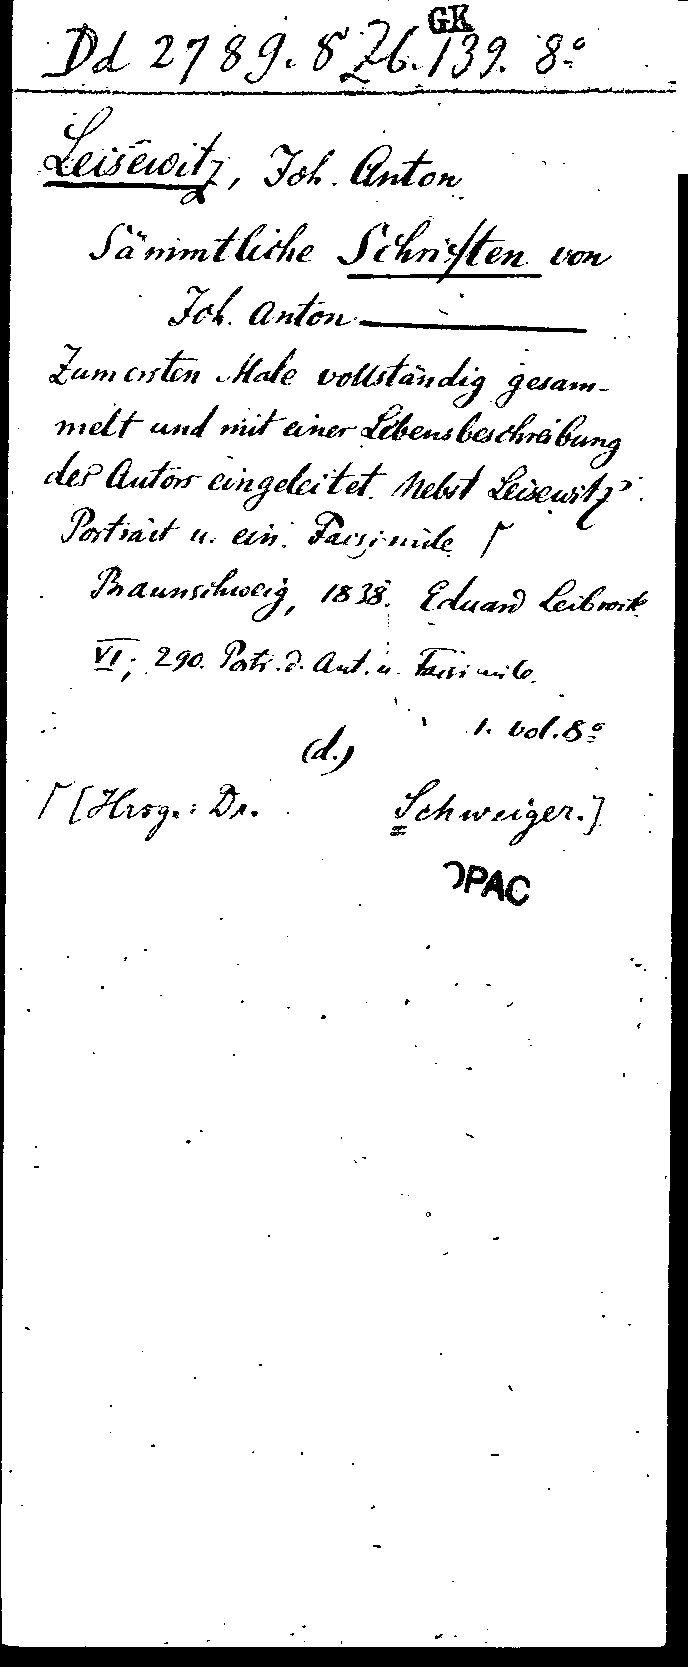 GK
Dd 2789. 8 Z6. 139. 8º
Leisewitz, Joh. Anton
Sämmtliche Schriften von
Joh. Anton
Zum ersten Male vollständig gesam-
melt und mit einer Lebensbeschreibung
des Autors eingeleitet. Nebst Leisewitz'
Porträit u. ein. Facsimile. Γ
Braunschweig, 1838. Eduard Leibrock
VI; 290. Portr. d. Aut. u. Facsimile.
1. vol. 8º
(d.)
Γ [Hrsg.: Dr. Schweiger.]
OPAC